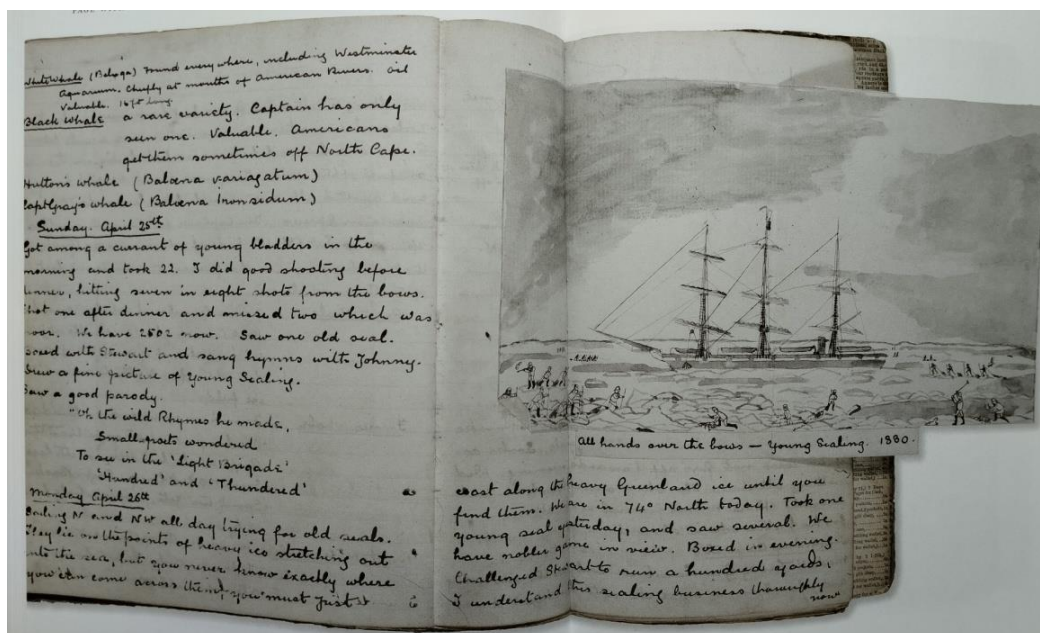 White Whale (Beluga) Found everywhere, including Westminster
Aquarium. Chiefly at mouths of American Rivers. Oil
Valuable. 16 ft long.
Black Whale a rare variety. Captain has only
seen one. Valuable. Americans
get them sometimes off North Cape.
Hutton's whale (Baloena variagatum)
Capt Gray's whale (Baloena Ironsidum)
Sunday. April 25th
Got among a currant of young bladders in the
morning and took 22. I did good shooting before
dinner, hitting seven in eight shots from the bows.
Shot one after dinner and missed two which was
poor. We have 2602 now. Saw one old seal.
Boxed with Stewart and sang hymns with Johnny.
Drew a fine picture of Young Sealing.
Saw a good parody.
"Oh the wild Rhymes he made,
Small poets wondered
To see in the 'Light Brigade'
'Hundred' and 'Thundered'
Monday April 26th
Sailing N and NW all day trying for old seals.
They lie on the points of heavy ice stretching out
into the sea, but you never know exactly where
you can come across them, you must just
All hands over the bows — Young Sealing. 1880.
coast along the heavy Greenland ice until you
find them. We are in 74° North today. Took one
young seal yesterday, and saw several. We
have nobler game in view. Boxed in evening.
Challenged Stewart to run a hundred yards,
I understand this sealing business thoroughly
now